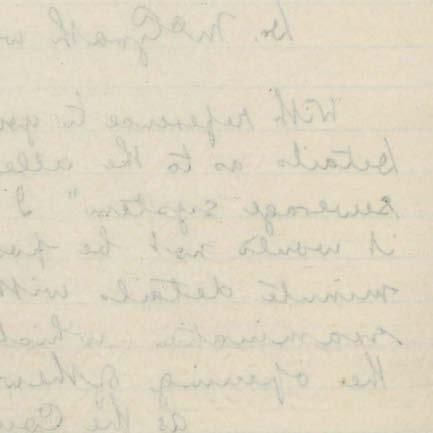 Dr. McGrath
With reference to
details as to the
sewerage system" I
it would not be
minute details with
examination
the opening of
as the